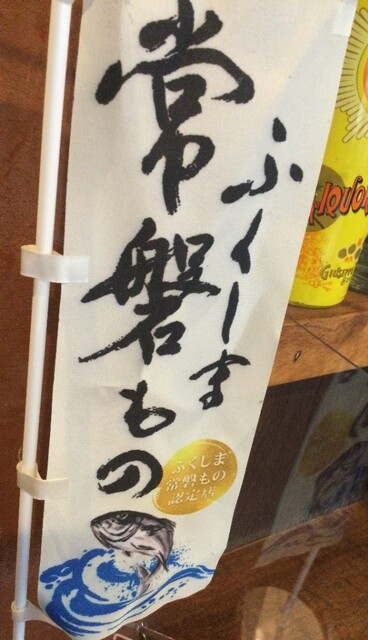 ふくしま
常磐もの
ふくしま
常磐もの
認定店